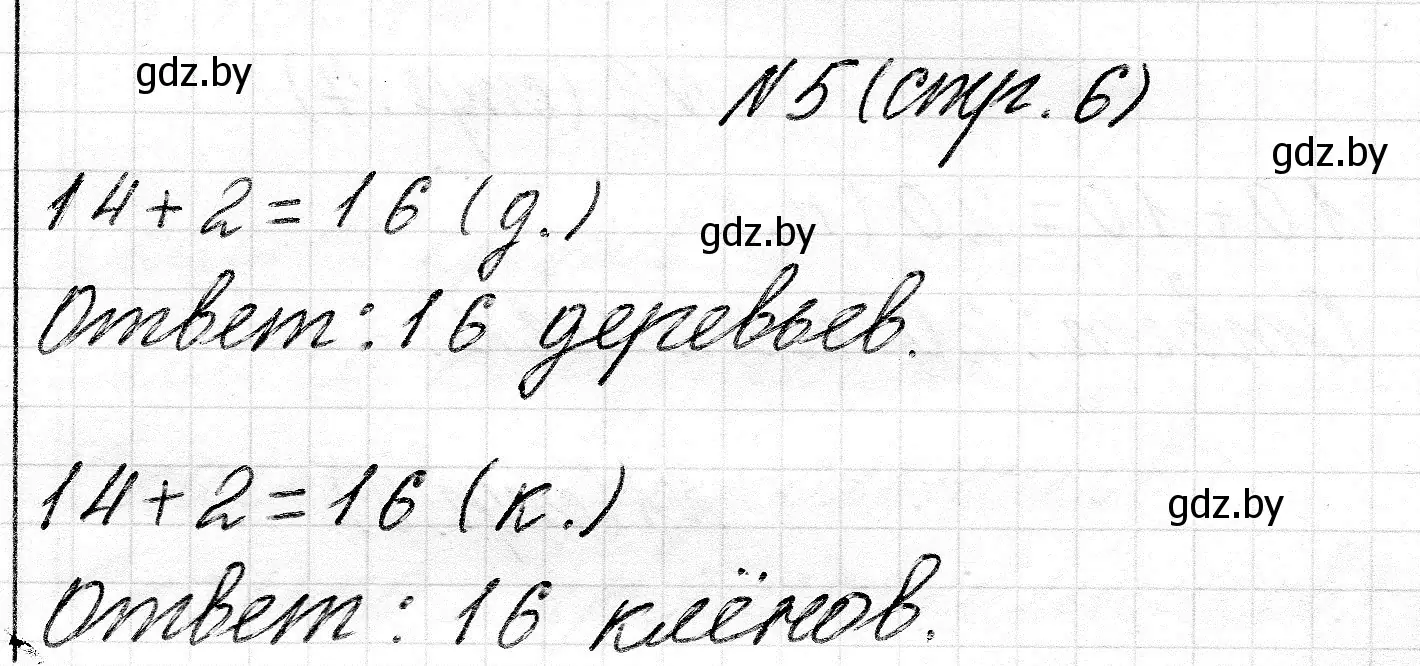 gdz.by
N5 (стр. 6)
gdz.by
14 + 2 = 16 (д.)
gdz.by
Ответ: 16 деревьев.
14 + 2 = 16 (к.)
gdz.by
Ответ: 16 клёнов.